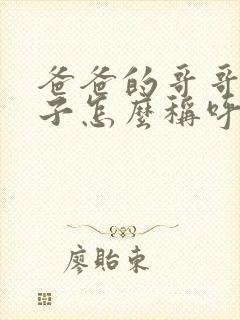 爸爸的哥哥
子怎麼稱呼
廖貽東